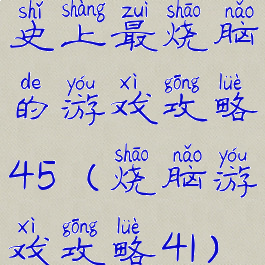 shǐ shàng zuì shāo nǎo
史上最烧脑
de yóu xì gōng lüè
的游戏攻略
shāo nǎo yóu
45（烧脑游
xì gōng lüè
戏攻略41）